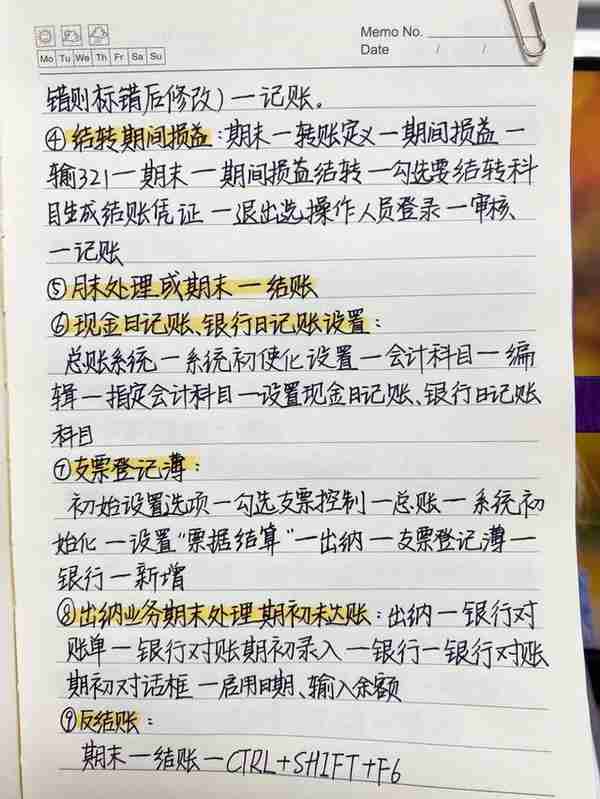 Memo No.
Mo Tu We Th Fr Sa Su
Date / /
错则标错后修改)一记账。
④结转期间损益:期末一转账定义一期间损益一
输321一期末一期间损益结转一勾选要结转科
目生成结账凭证一退出选操作人员登录一审核、
一记账
⑤月末处理或期末一结账
⑥现金日记账、银行日记账设置:
总账系统一系统初使化设置一会计科目一编
辑一指定会计科目一设置现金日记账、银行日记账
科目
⑦支票登记薄:
初始设置选项一勾选支票控制一总账一系统初
始化一设置“票据结算”一出纳一支票登记薄一
银行一新增
⑧出纳业务期末处理期初未达账:出纳一银行对
账单一银行对账期初录入一银行一银行对账
期初对话框一启用日期、输入余额
⑨反结账:
期末一结账一CTRL+SHIFT+F6